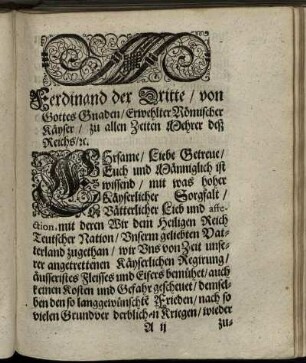 Ferdinand der Dritte / von
Gottes Gnaden / Erwehlter Römischer
Käyser / zu allen Zeiten Mehrer deß
Reichs / ꝛc.
EHrsame / Liebe Getreue /
Euch und Männiglich ist
wissend / mit was hoher
Käyserlicher Sorgfalt /
Vätterlicher Lieb und affe-
ction. mit deren Wir dem Heiligen Reich
Teutscher Nation / Unserm geliebten Vat-
terland zugethan / wir Uns von Zeit unse-
rer angetrettenen Käyserlichen Regirung /
äusseristes Fleisses und Eifers bemühet / auch
keinen Kosten und Gefahr gescheuet / demsel-
ben den so langgewünschte Frieden / nach so
vielen Grundver derblich-n Kriegen / wieder
A ij
zu-